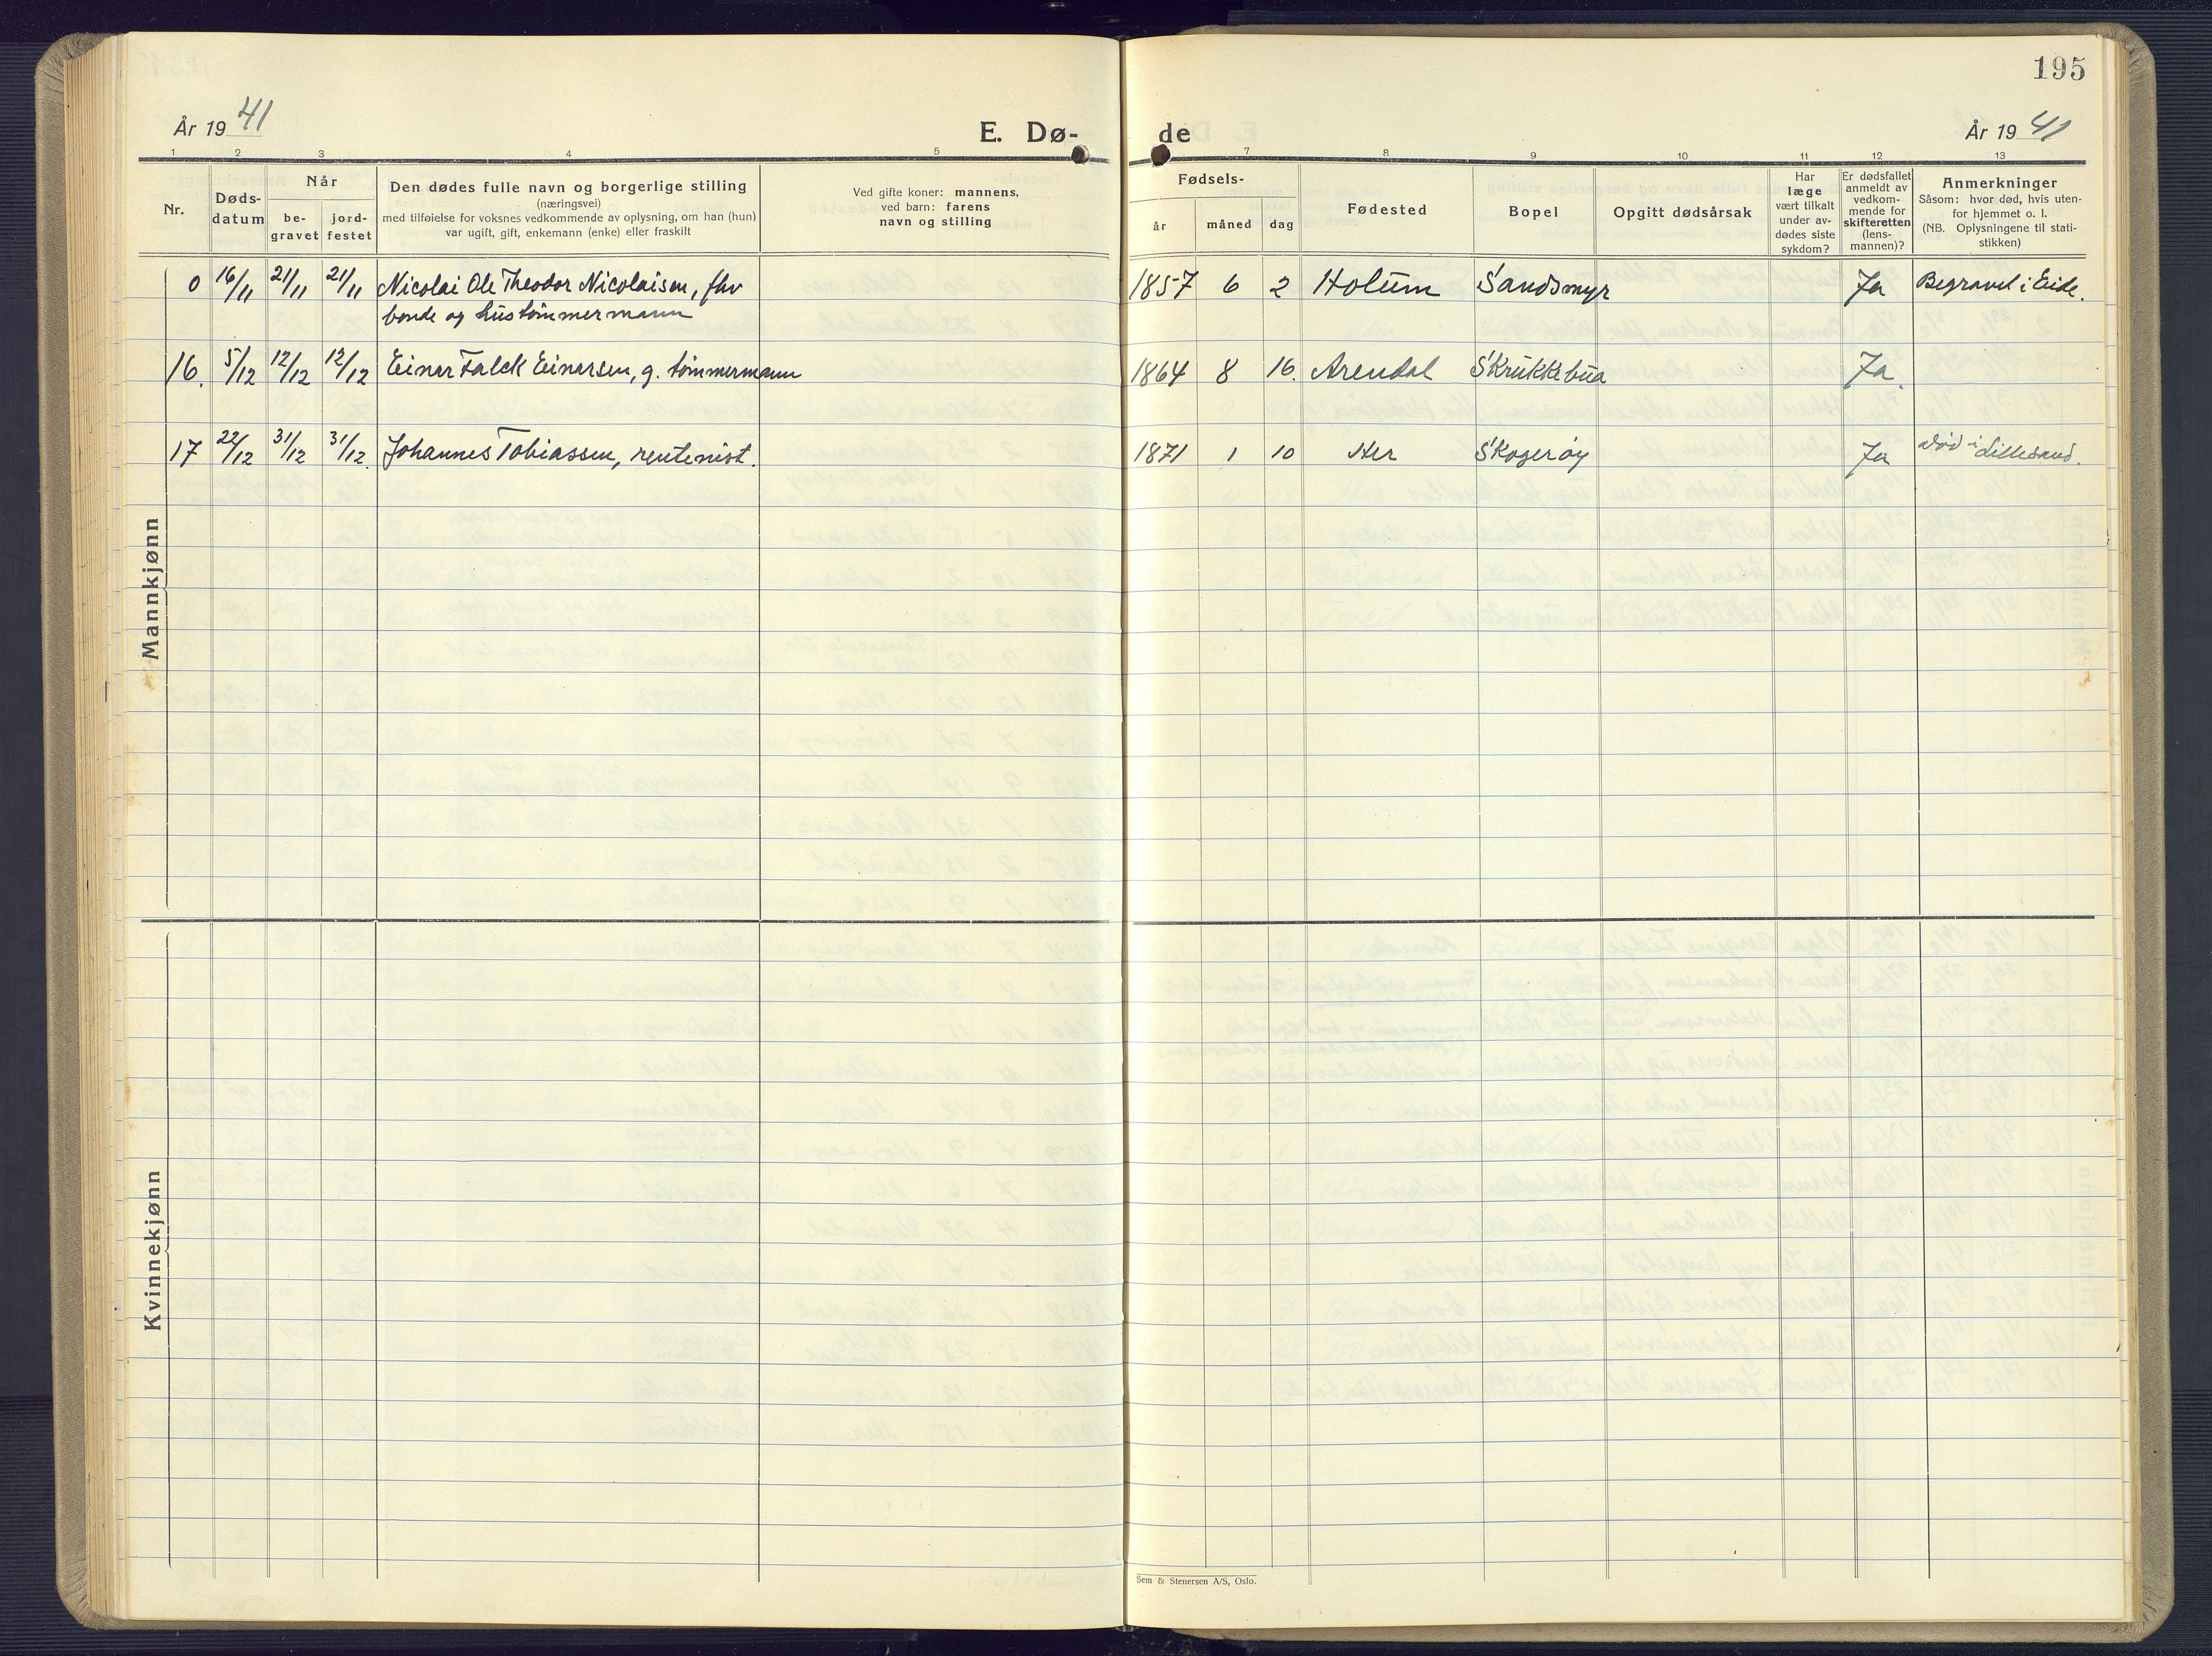 195
År 19 41
E. Dø-
de
År 19 41
1 2 3 4 5
7 8 9 10 11 12 13
Nr.
Døds-
datum
Når
be-
gravet
jord-
festet
Den dødes fulle navn og borgerlige stilling
(næringsvei)
med tilføielse for voksnes vedkommende av oplysning, om han (hun)
var ugift, gift, enkemann (enke) eller fraskilt
Ved gifte koner: mannens,
ved barn: farens
navn og stilling
Fødsels-
år
måned
dag
Fødested
Bopel
Opgitt dødsårsak
Har
læge
vært tilkalt
under av-
dødes siste
sykdom?
Er dødsfallet
anmeldt av
vedkom-
mende for
skifteretten
(lens-
mannen)?
Anmerkninger
Såsom: hvor død, hvis uten-
for hjemmet o. l.
(NB. Oplysningene til stati-
stikken)
Mannkjønn
0 16/11 21/11 21/11 Nicolai Ole Theodor Nicolaisen, fhv 1857 6 2 Holum Sandsmyr Ja Begravet i Eide.
bonde og hustømmermann
16. 5/12 12/12 12/12 Einar Falck Einarsen, g. tømmermann 1864 8 16. Arendal Skrukkebua Ja.
17 22/12 31/12 31/12. Johannes Tobiassen, rentenist. 1871 1 10 Her Skogerøy Ja Død i Lillesand.
Kvinnekjønn
Sem & Stenersen A/S, Oslo.